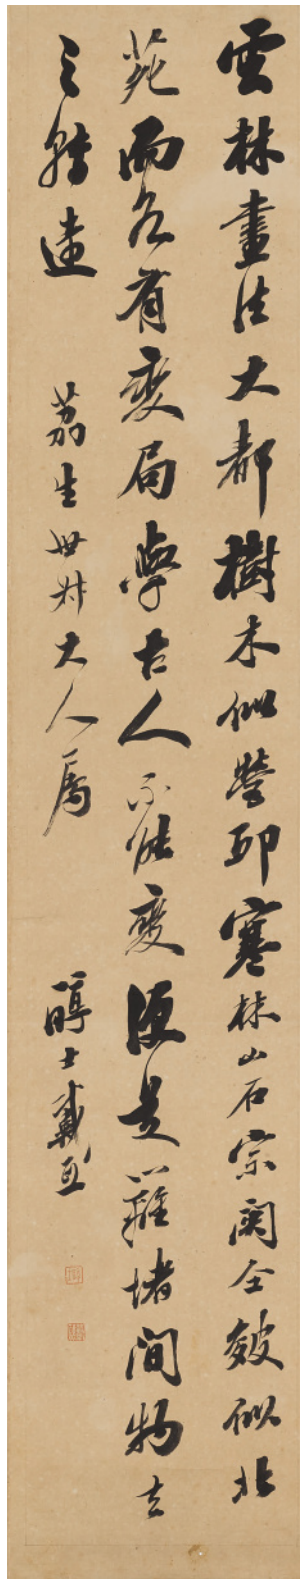 雲林畫法大都樹木似營邱寒林山石宗関仝皴似北
苑而各有變局學古人不能變便是籬堵間物去
之轉遠
荔生世叔大人屬
醇士戴熙